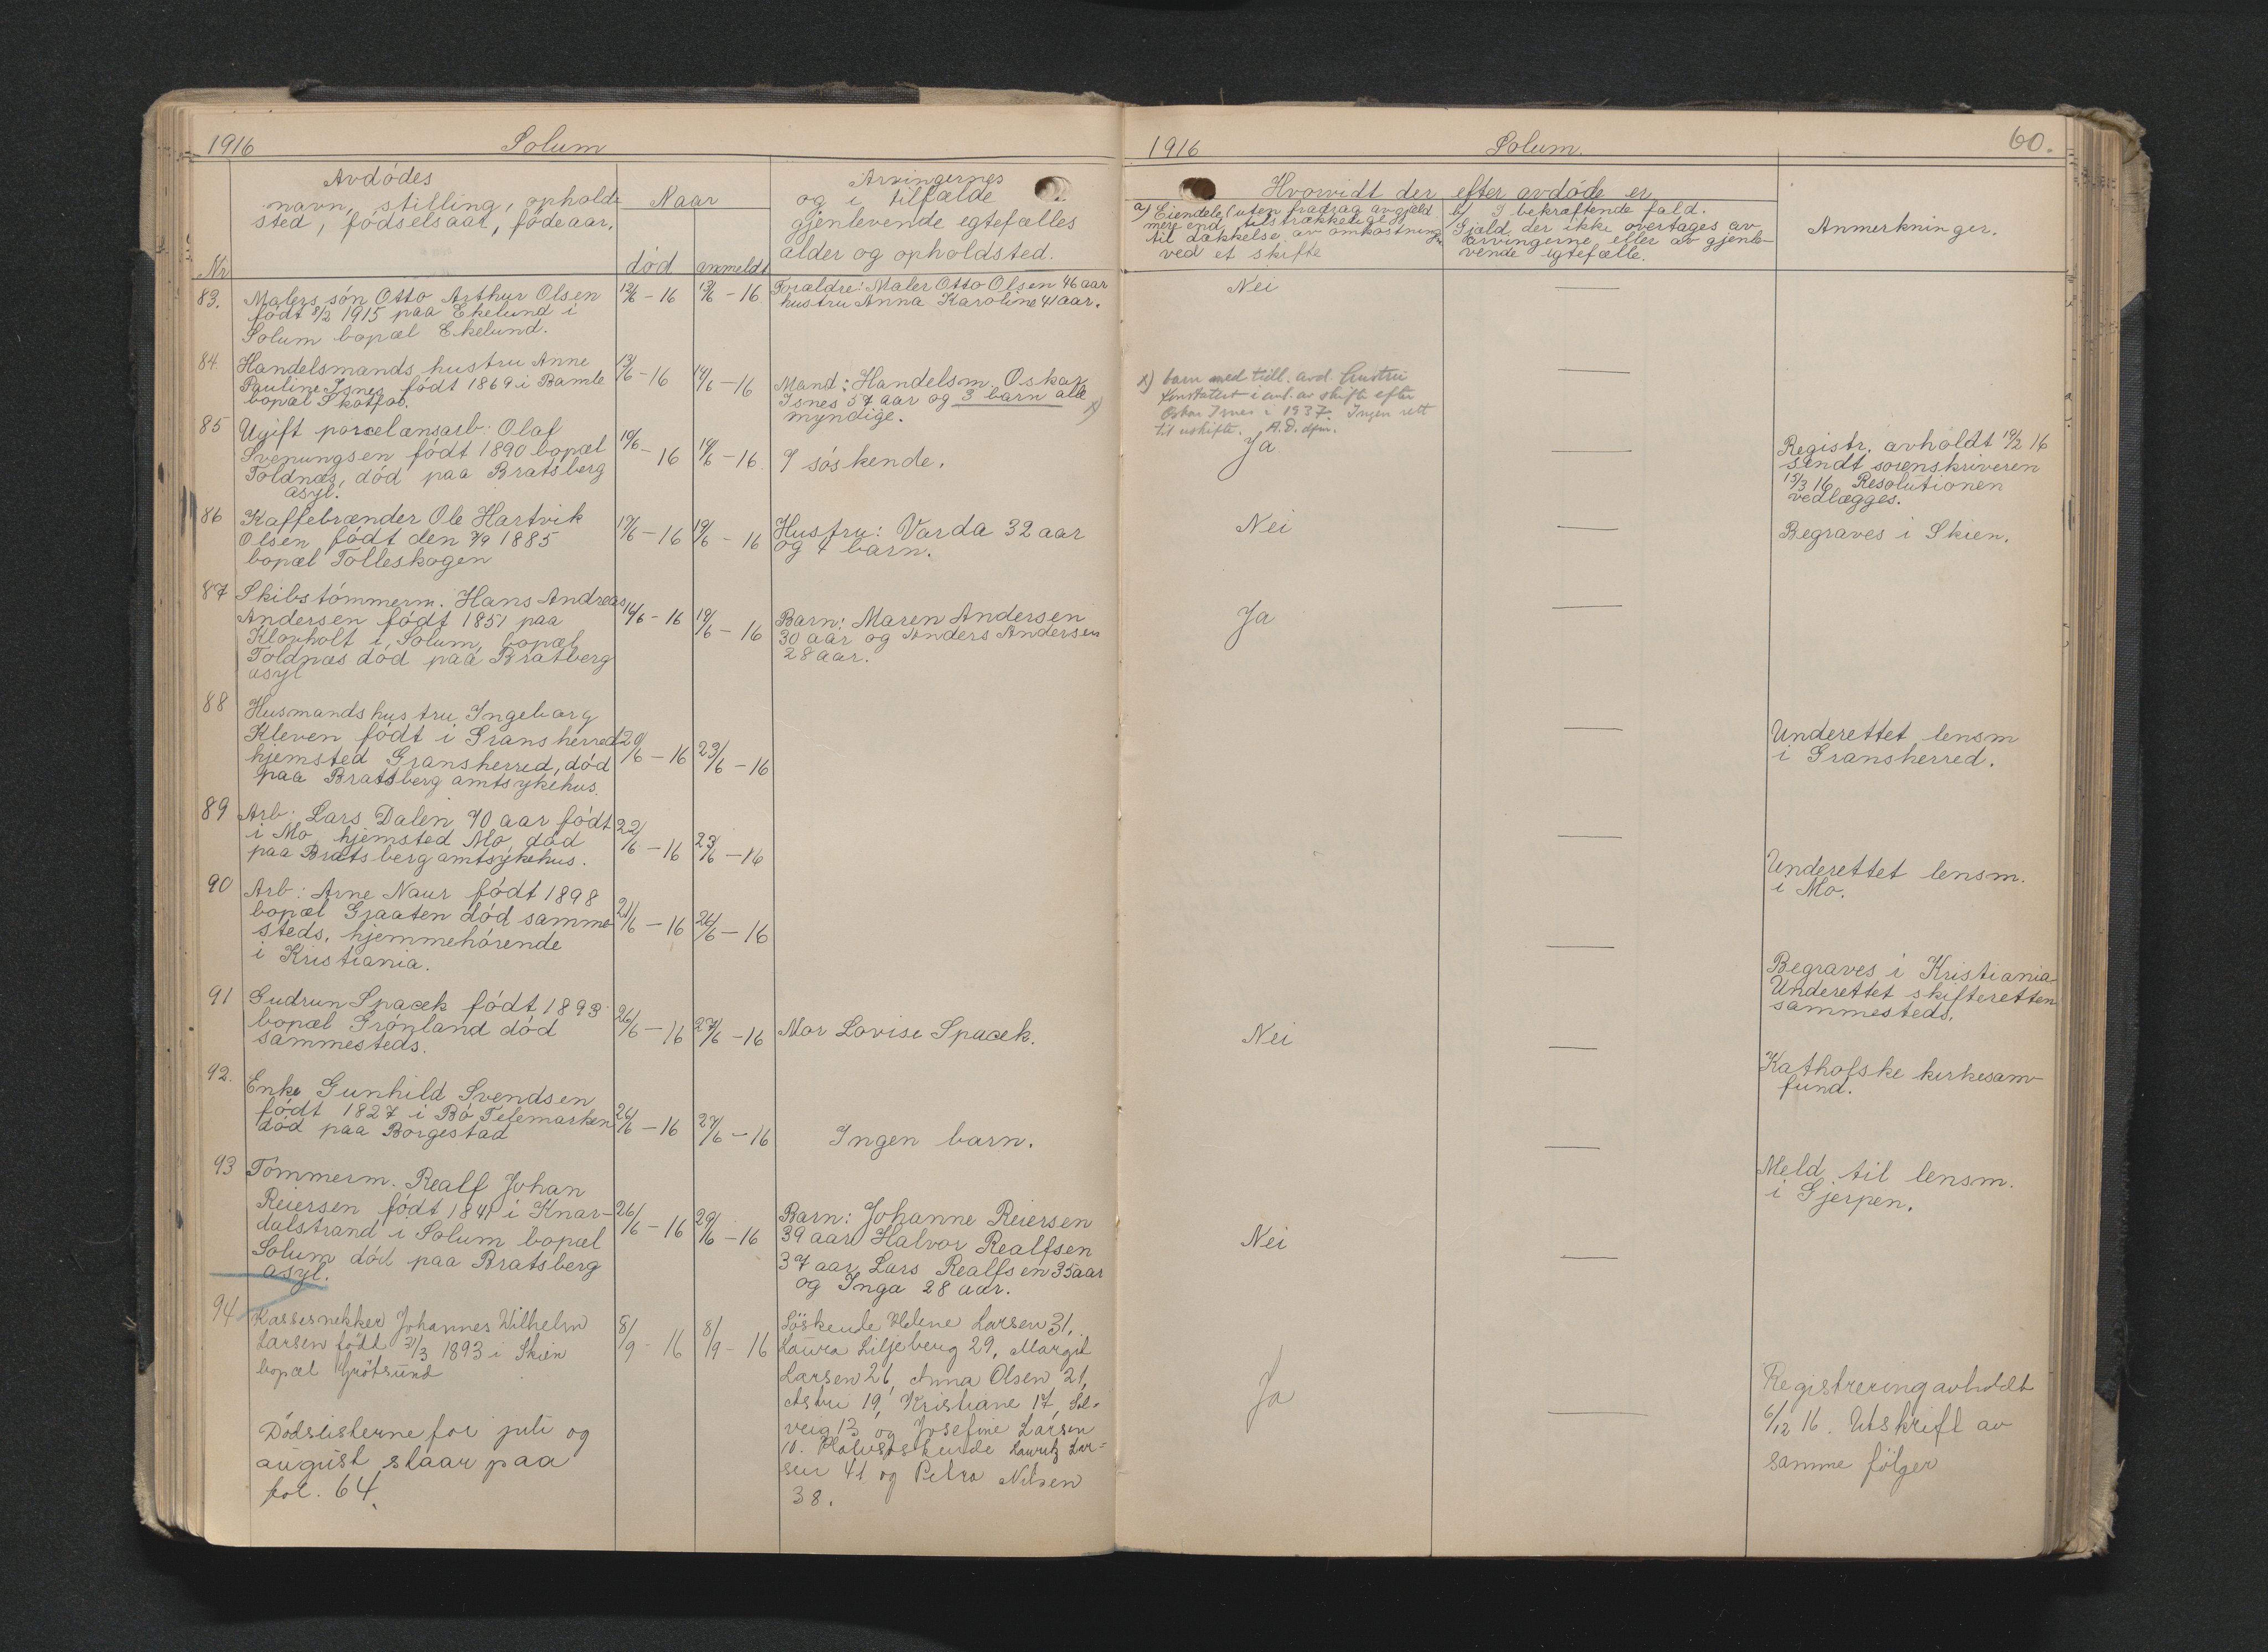 1916 Solum
Avdødes
navn, stilling, opholds
sted, fødselsaar, fødeaar.
Nr
Naar
død anmeldt
Arvingernes
og i tilfælde
gjenlevende egtefælles
alder og opholdsted.
83. Malers søn Otto Arthur Olsen
født 8/2 1915 paa Ekelund i
Solum bopæl Ekelund.
12/6 - 16 13/6 - 16.
Forældre: Maler Otto Olsen 46 aar
hustru Anna Karoline 41 aar.
84. Handelsmands hustru Anne
Pauline Isnes født 1869 i Bamle
bopæl Skotfos.
13/6 - 16 14/6 - 16
Mand: Handelsm. Oskar
Isnes 57 aar og 3 barn alle x)
myndige.
85 Ugift porcelænsarb: Olaf
Svenungsen født 1890 bopæl
Toldnæs, død paa Bratsberg
asyl.
- 16 19/6 - 16.
7 søskende.
86 Kaffebrænder Ole Hartvik
Olsen født den 7/9 1885
bopæl Tolleskogen
17/6 - 16 19/6 - 16
Hustru: Varda 32 aar
og 4 barn.
87 Skibstømmerm. Hans Andreas
Andersen født 1851 paa
Klopholt i Solum, bopæl
Toldnæs død paa Bratberg
asyl
16/6 - 16 19/6 - 16
Barn: Maren Andersen
30 aar og Anders Andersen
28 aar.
88 Husmandshustru Ingeborg
Kleven født i Gransherred
hjemsted Gransherred, død
paa Bratsberg amtsykehus.
20/6 - 16 23/6 - 16
89 Arb: Lars Dalen 70 aar født
i Mo hjemsted Mo, død
paa Bratsberg amtsykehus.
22/6 - 16 23/6 - 16
90 Arb: Arne Naur født 1898
bopæl Graaten død samme
steds, hjemmehørende
i Kristiania.
21/6 - 16 26/6 - 16
91 Gudrun Spacek født 1893
bopæl Grønland død
sammesteds.
26/6 - 16 27/6 - 16
Mor Lovise Spacek.
92. Enke Gunhild Svendsen
født 1827 i Bø Telemarken
død paa Borgestad
26/6 - 16 27/6 - 16
Ingen barn.
93 Tømmerm. Realf Johan
Reiersen født 1841 i Knar-
dalstrand i Solum bopæl
Solum død paa Bratsberg
asyl.
26/6 - 16 29/6 - 16
Barn: Johanne Reiersen
39 aar Halvor Realfsen
37 aar, Lars Realfsen 35 aar
og Inga 28 aar.
94 Kassesnekker Johannes Wilhelm
Larsen født 31/3 1893 i Skien
bopæl Grøtsund
8/9 - 16 8/9 - 16
Söskende Helene Larsen 31,
Laura Liljeberg 29, Margit
Larsen 26, Anna Olsen 21,
Astri 19, Kristiane 17, Sol-
veig 13 og Josefine Larsen
10. Halvsöskende Lauritz Lar-
sen 41 og Petra Nilsen
38.
Dödslisterne for juli og
august staar paa
fol. 64.
1916 Solum. 60.
Hvorvidt der efter avdøde er
a) Eiendele (uten fradrag av gjæld
mere end tilstrækkelige)
til dækkelse av omkostningene
ved et skifte
b) I bekræftende fald.
Gjæld, der ikke overtages av
arvingerne eller av gjenle-
vende egtefælle.
Anmerkninger.
Nei
x) barn med tidl. avd. hustru
konstatert i anl. av skifte efter
Oskar Isnes i 1937. Ingen rett
til uskifte. A.D. dfm.
Ja
Registr. avholdt 19/2 16
sendt sorenskriveren
15/3 16 Resolutionen
vedlægges.
Nei
Begraves i Skien.
Ja
Underettet lensm
i Gransherred.
Underettet lensm.
i Mo.
Begraves i Kristiania
Underettet skifteretten
sammesteds.
Nei
Katholske kirkesam-
fund.
Meld. til lensm.
i Gjerpen.
Nei
Ja
Registrering avholdt
6/12 16. Utskrift av
samme fölger